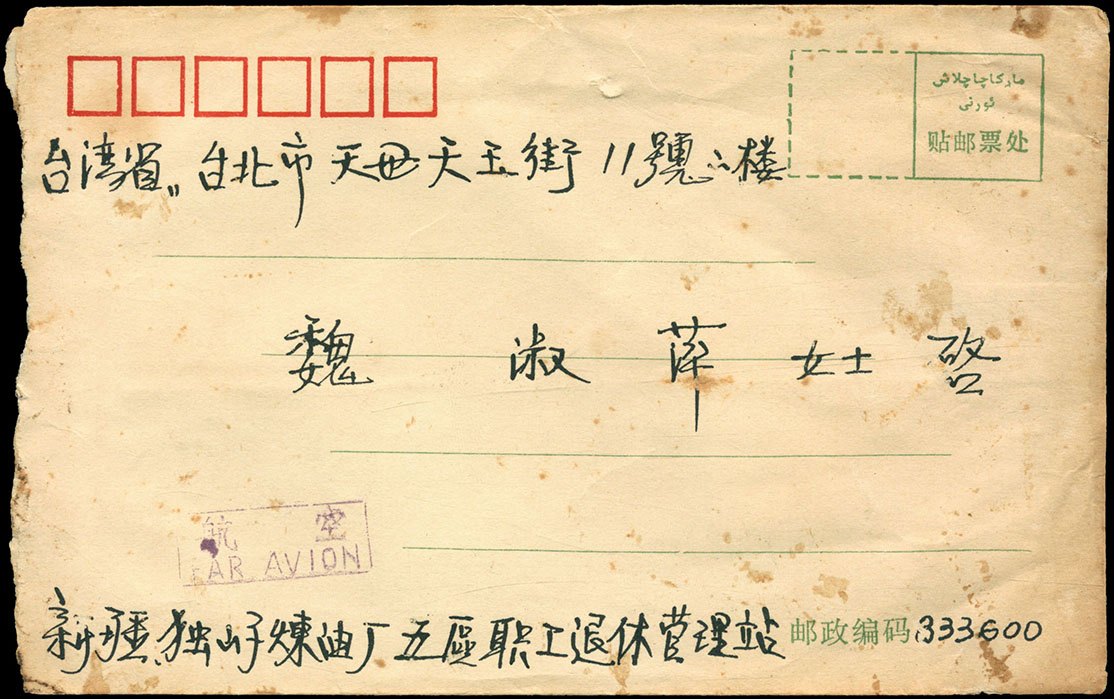 ماركاچاپلاش
ئورنى
贴邮票处
台湾省,,台北市天母天玉街11號六楼
魏淑萍女士啓
航空
PAR AVION
新疆独山子煉油厂五區职工退休管理站 邮政编码 333600